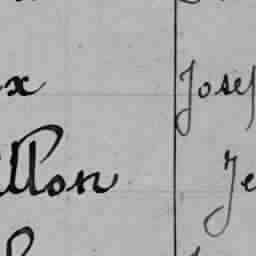 x Josep
illon Je